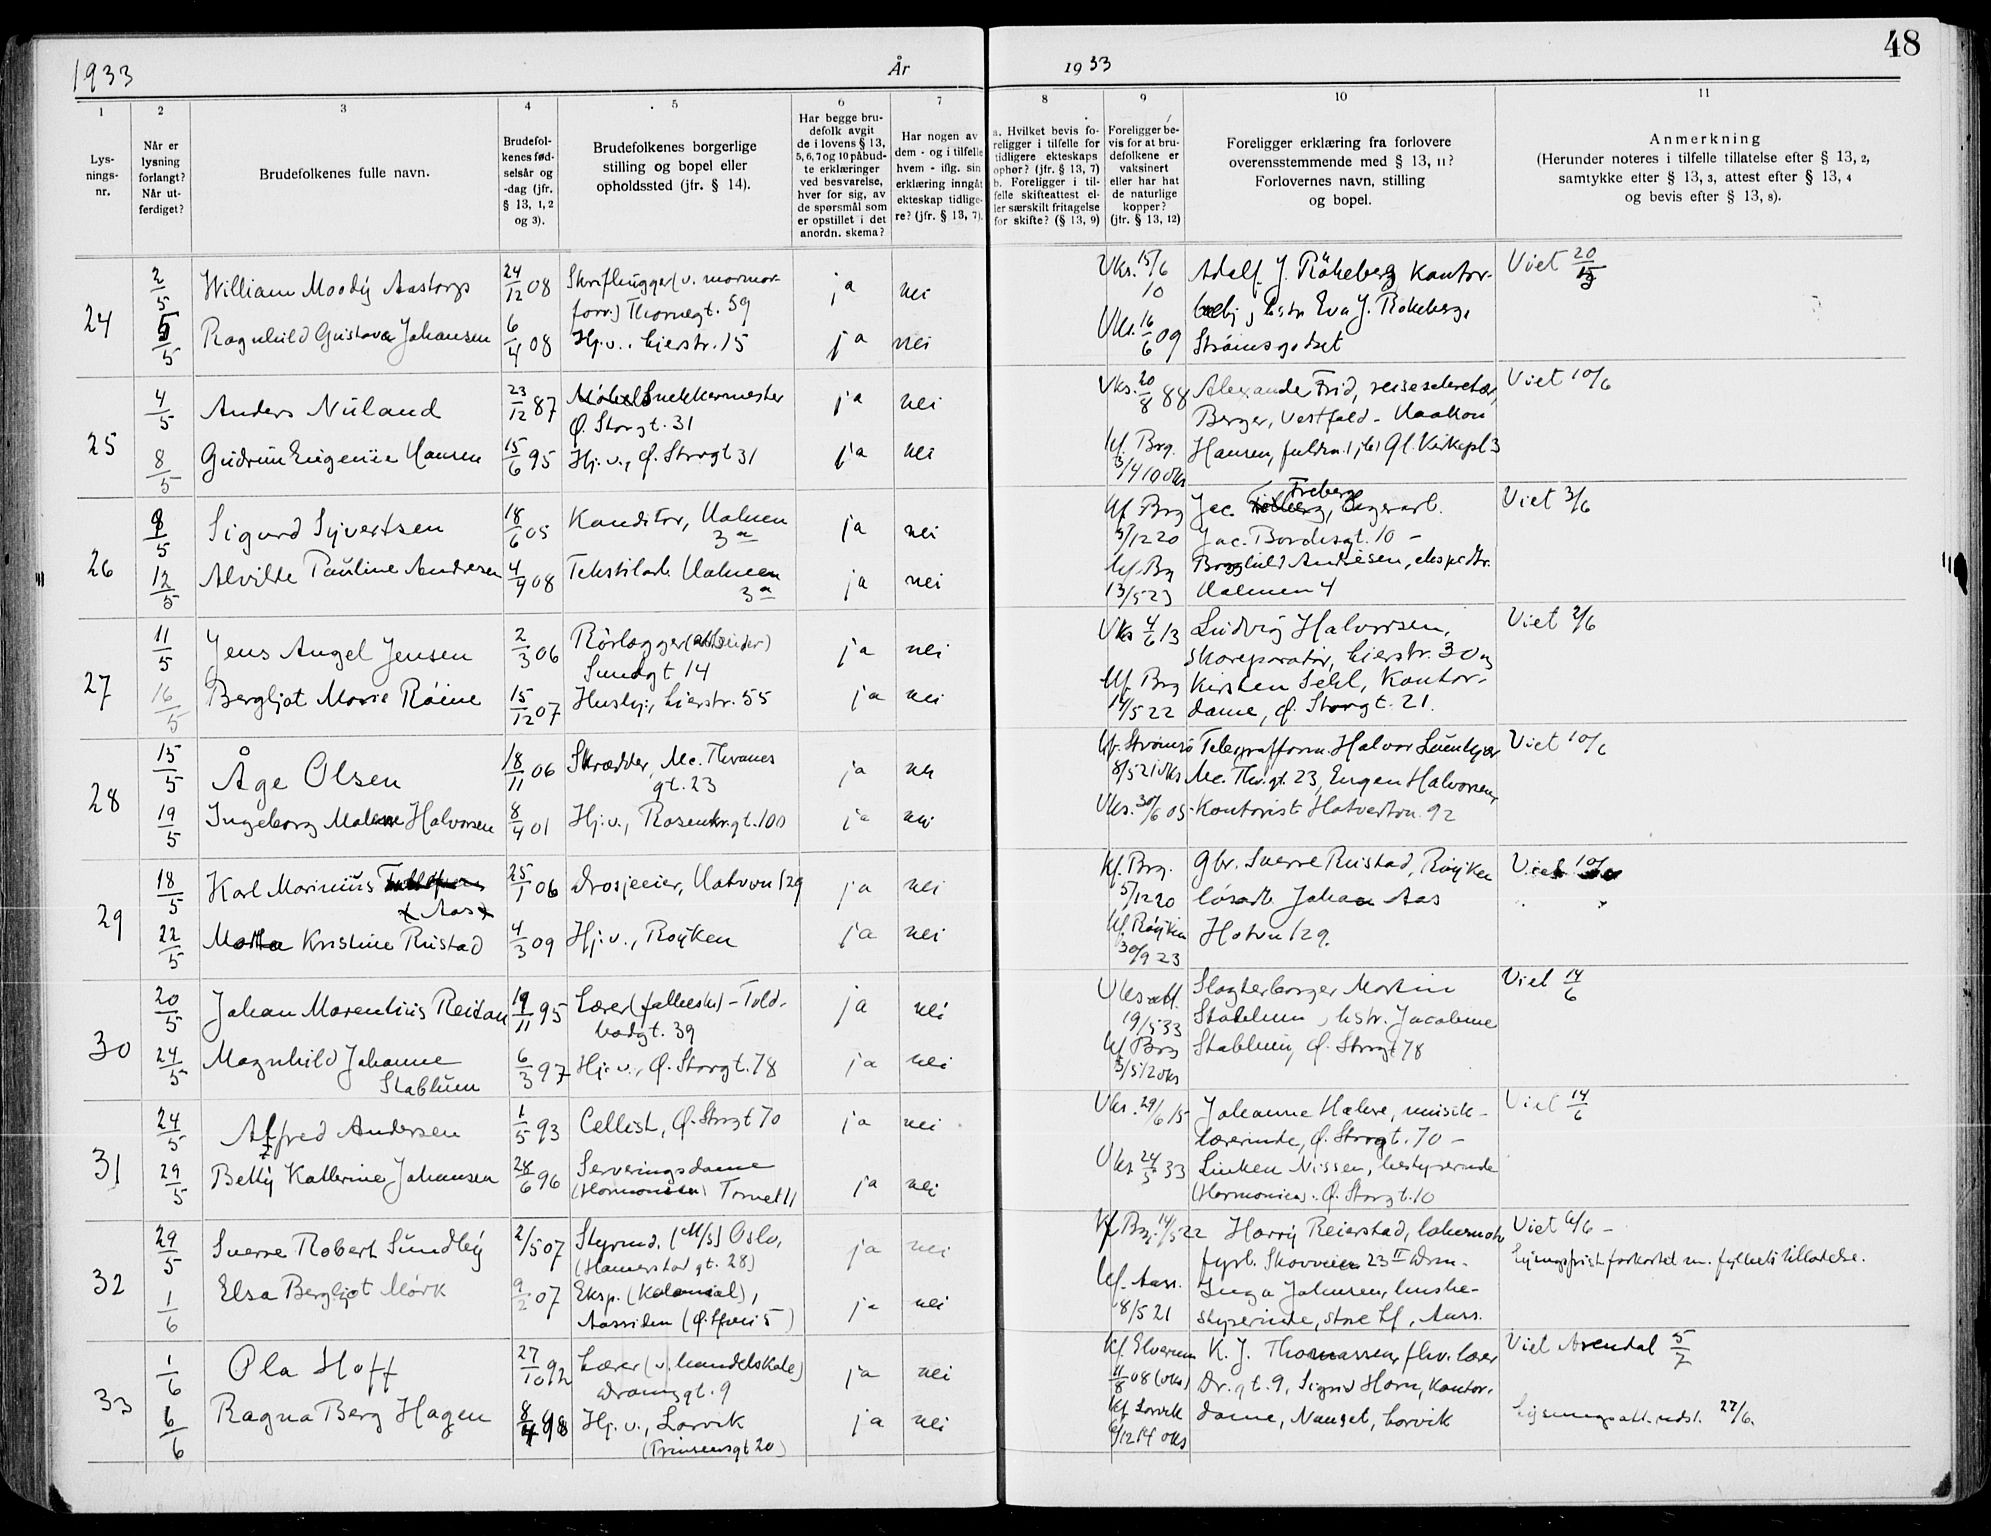 1933 År 1933 48
1 2 3 4 5 6 7 8 9 10 11
Lysningsnr.
Når er lysning forlangt? Når utferdiget?
Brudefolkenes fulle navn.
Brudefolkenes fødselsår og -dag (jfr. § 13, 1, 2 og 3).
Brudefolkenes borgerlige stilling og bopel eller opholdssted (jfr. § 14).
Har begge brudefolk avgit de i lovens § 13, 5, 6, 7 og 10 påbudte erklæringer ved besvarelse, hver for sig, av de spørsmål som er opstillet i det anordn. skema?
Har nogen av dem - og i tilfelle hvem - iflg. sin erklæring inngått ekteskap tidligere? (jfr. § 13, 7).
a. Hvilket bevis foreligger i tilfelle for tidligere ekteskaps ophør? (jfr. § 13, 7) b. Foreligger i tilfelle skifteattest eller særskilt fritagelse for skifte? (§ 13, 9)
Foreligger bevis for at brudefolkene er vaksinert eller har hat de naturlige kopper? (jfr. § 13, 12)
Foreligger erklæring fra forlovere overensstemmende med § 13, 11? Forlovernes navn, stilling og bopel.
Anmerkning (Herunder noteres i tilfelle tillatelse efter § 13, 2, samtykke efter § 13, 3, attest efter § 13, 4 og bevis efter § 13, 8).
24 2/5 William Moody Aastorp 24/12 08 Skrifthugger (v. marmorforr.) Thornegt. 59 ja nei Vks. 15/6 10 Adolf J. Råkeberg Kontor- Viet 20/
5/5 Ragnhild Gustava Johansen 6/4 08 Hj.v., Lierstr. 15 ja nei Vks. 16/6 09 hstr. Eva J. Rokeberg, Strømsgodset
25 4/5 Anders Nuland 23/12 87 Møbelsnekkermester Ø. Storgt. 31 ja nei Vks. 20/8 88 Alexander Frid, reisesekretær, Berger, Vestfold - Haakon Viet 10/6
8/5 Gudrun Eugenie Hansen 15/6 95 Hj.v., Ø. Storgt 31 ja nei kf. Brg. 3/4 10 vks Hansen, fuldm. Gl. Kirkepl 3
26 8/5 Sigurd Syvertsen 18/6 05 Konditor, Holmen 3a ja nei kf Brg 5/12 20 Jac. Freberg, lagerarb. Jac. Bordesgt. 10 - Viet 3/6
12/5 Alvilde Pauline Andresen 4/9 08 Tekstilarb. Holmen 3a ja nei kf. Brg 13/5 23 Borghild Andresen, ekspedtr. Holmen 4
27 11/5 Jens Angel Jensen 2/3 06 Rørlægger (arbeider) Sundgt 14 ja nei Vks 4/6 13 Ludvig Halvorsen, skoreparatør, Lierstr. 30 og Viet 2/6
16/5 Bergljot Marie Røine 15/12 07 Hushj., Lierstr. 55 ja nei kf. Brg 14/5 22 Kirsten Sehl, Kontordame, Ø. Storgt. 21.
28 15/5 Åge Olsen 18/11 06 Skrædder, Mc. Thranes gt. 23 ja nei kf. Strømsø 8/5 21 vks Telegrafform. Halvor Mc. Thr.gt. 23, Eugen Halvorsen, Viet 10/6
19/5 Ingeborg Malene Halvorsen 8/4 01 Hj.v., Rosenkr.gt. 100 ja nei Vks. 30/6 05 Kontorist Hotvedtvn. 92
29 18/5 Karl Marinius x Aas x 25/1 06 Drosjeeier, Hotvvn 129 ja nei kf. Brg. 5/12 20 Gbr. Sverre Rustad, Røyken løsarb. Johan Aas Viet 10/6
22/5 Martha Kristine Rustad 4/3 09 Hj.v., Røyken ja nei kf Røyken 30/9 23 Hotvn 129.
30 20/5 Johan Marentius Reitan 19/11 95 Lærer (folkesk) - Toldbodgt. 39 ja nei Vks att. 19/5 33 Slagterborger Martin Stablum, hstr. Jacobine Viet 14/6
24/5 Magnhild Johanne Stablum 6/3 97 Hj.v., Ø. Storgt. 78 ja nei kf Brg 3/5 12 vks Stablum, Ø. Storgt 78
31 24/5 Alfred Andersen 1/5 93 Cellist, Ø. Storgt 70 ja nei Vks. 29/6 15 Johanne Halvre, musiklærerinde, Ø. Storgt. 70 - Viet 14/6
29/5 Betty Katherine Johansen 28/6 96 Serveringsdame (Harmonien) Tornet 11 ja nei Vks 24/5 33 Linken Nissen, bestyrerinde (Harmonien) Ø. Storgt. 10
32 29/5 Sverre Robert Sundby 2/5 07 Styrmd. (M/S) Oslo, (Hamerstad gt. 28) ja nei kf Brg. 14/5 22 Harry Reierstad, lokomotv fyrb. Skovveien 23 II Drm. Viet 6/6 -
Lysningsfrist forkortet m. fylkets tillatelse.
1/6 Elsa Bergljot Mørk 9/2 07 Eksp. (Kolonial), Aassiden ja nei kf. Aass. 18/5 21 Inga Johnsen, husbestyrerinde, store kf, Aass.
33 1/6 Ola Hoff 27/10 92 Lærer (v. handelsskole) Dramsgt. 9 ja nei kf. Elverum 11/8 08 (vks) K. J. Thomassen, fhv. lærer Dr.gt. 9, Sigrid Horn, Kontor- Viet Arendal 5/7
6/6 Ragna Berg Hagen 8/4 98 Hj.v., Larvik (Prinsensgt 20) ja nei kf Larvik 6/12 14 vks dame, Nanset, Larvik Lysningsatt. udst. 27/6.